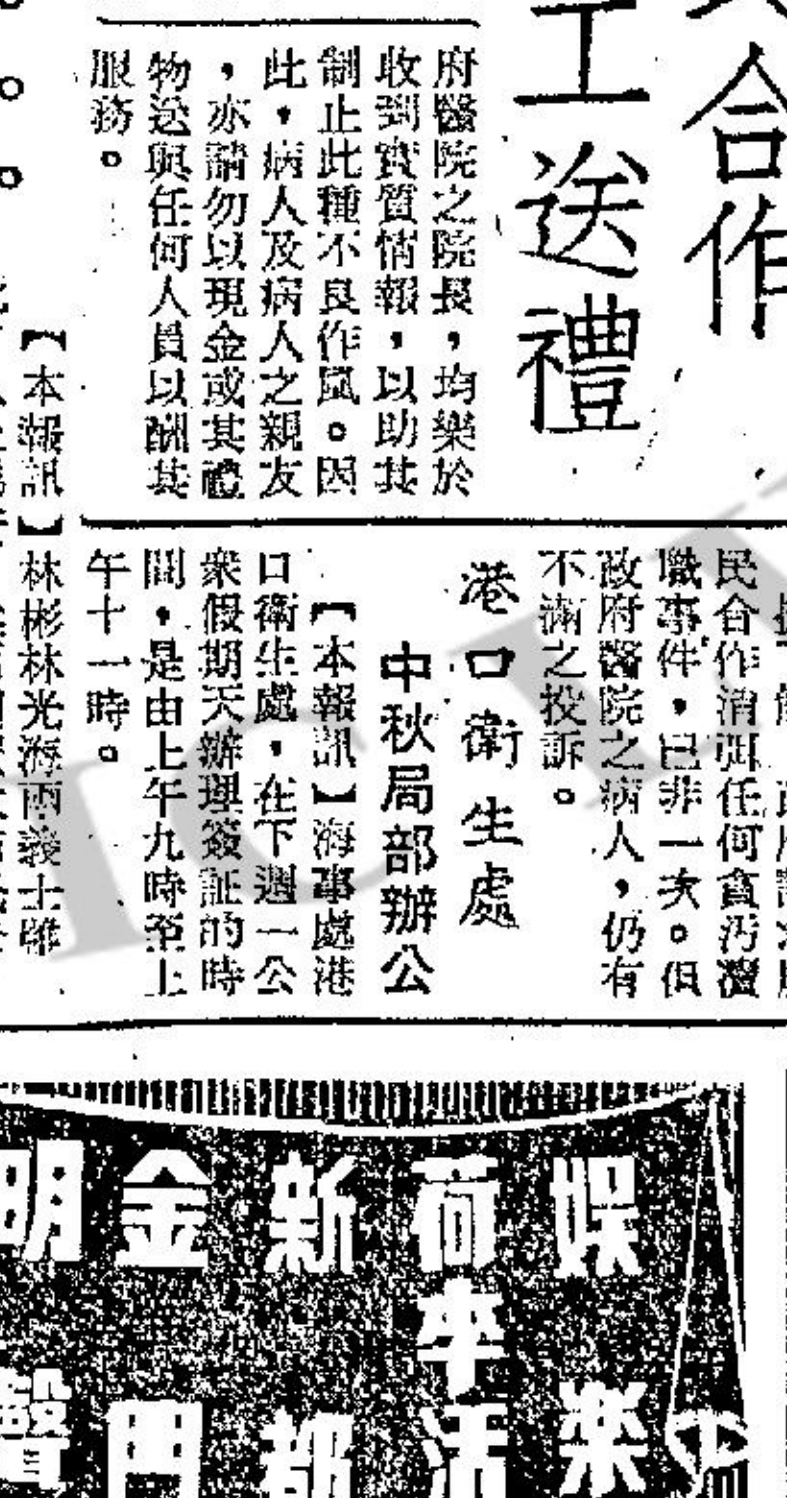 合作
工送禮
府醫院之院長，均樂於
收到實質情報，以助其
制止此種不良作風。因
此，病人及病人之親友
，亦請勿以現金或其禮
物送與任何人員以酬其
服務。
民合作消弭任何貪污瀆
職事件，已非一次。但
政府醫院之病人，仍有
不滿之投訴。
港口衛生處
中秋局部辦公
【本報訊】海事處港
口衛生處，在下週一公
衆假期天辦理簽証的時
間，是由上午九時至上
午十一時。
【本報訊】林彬林光海兩義士雖
娛樂
荷李活
新都
金門
明聲